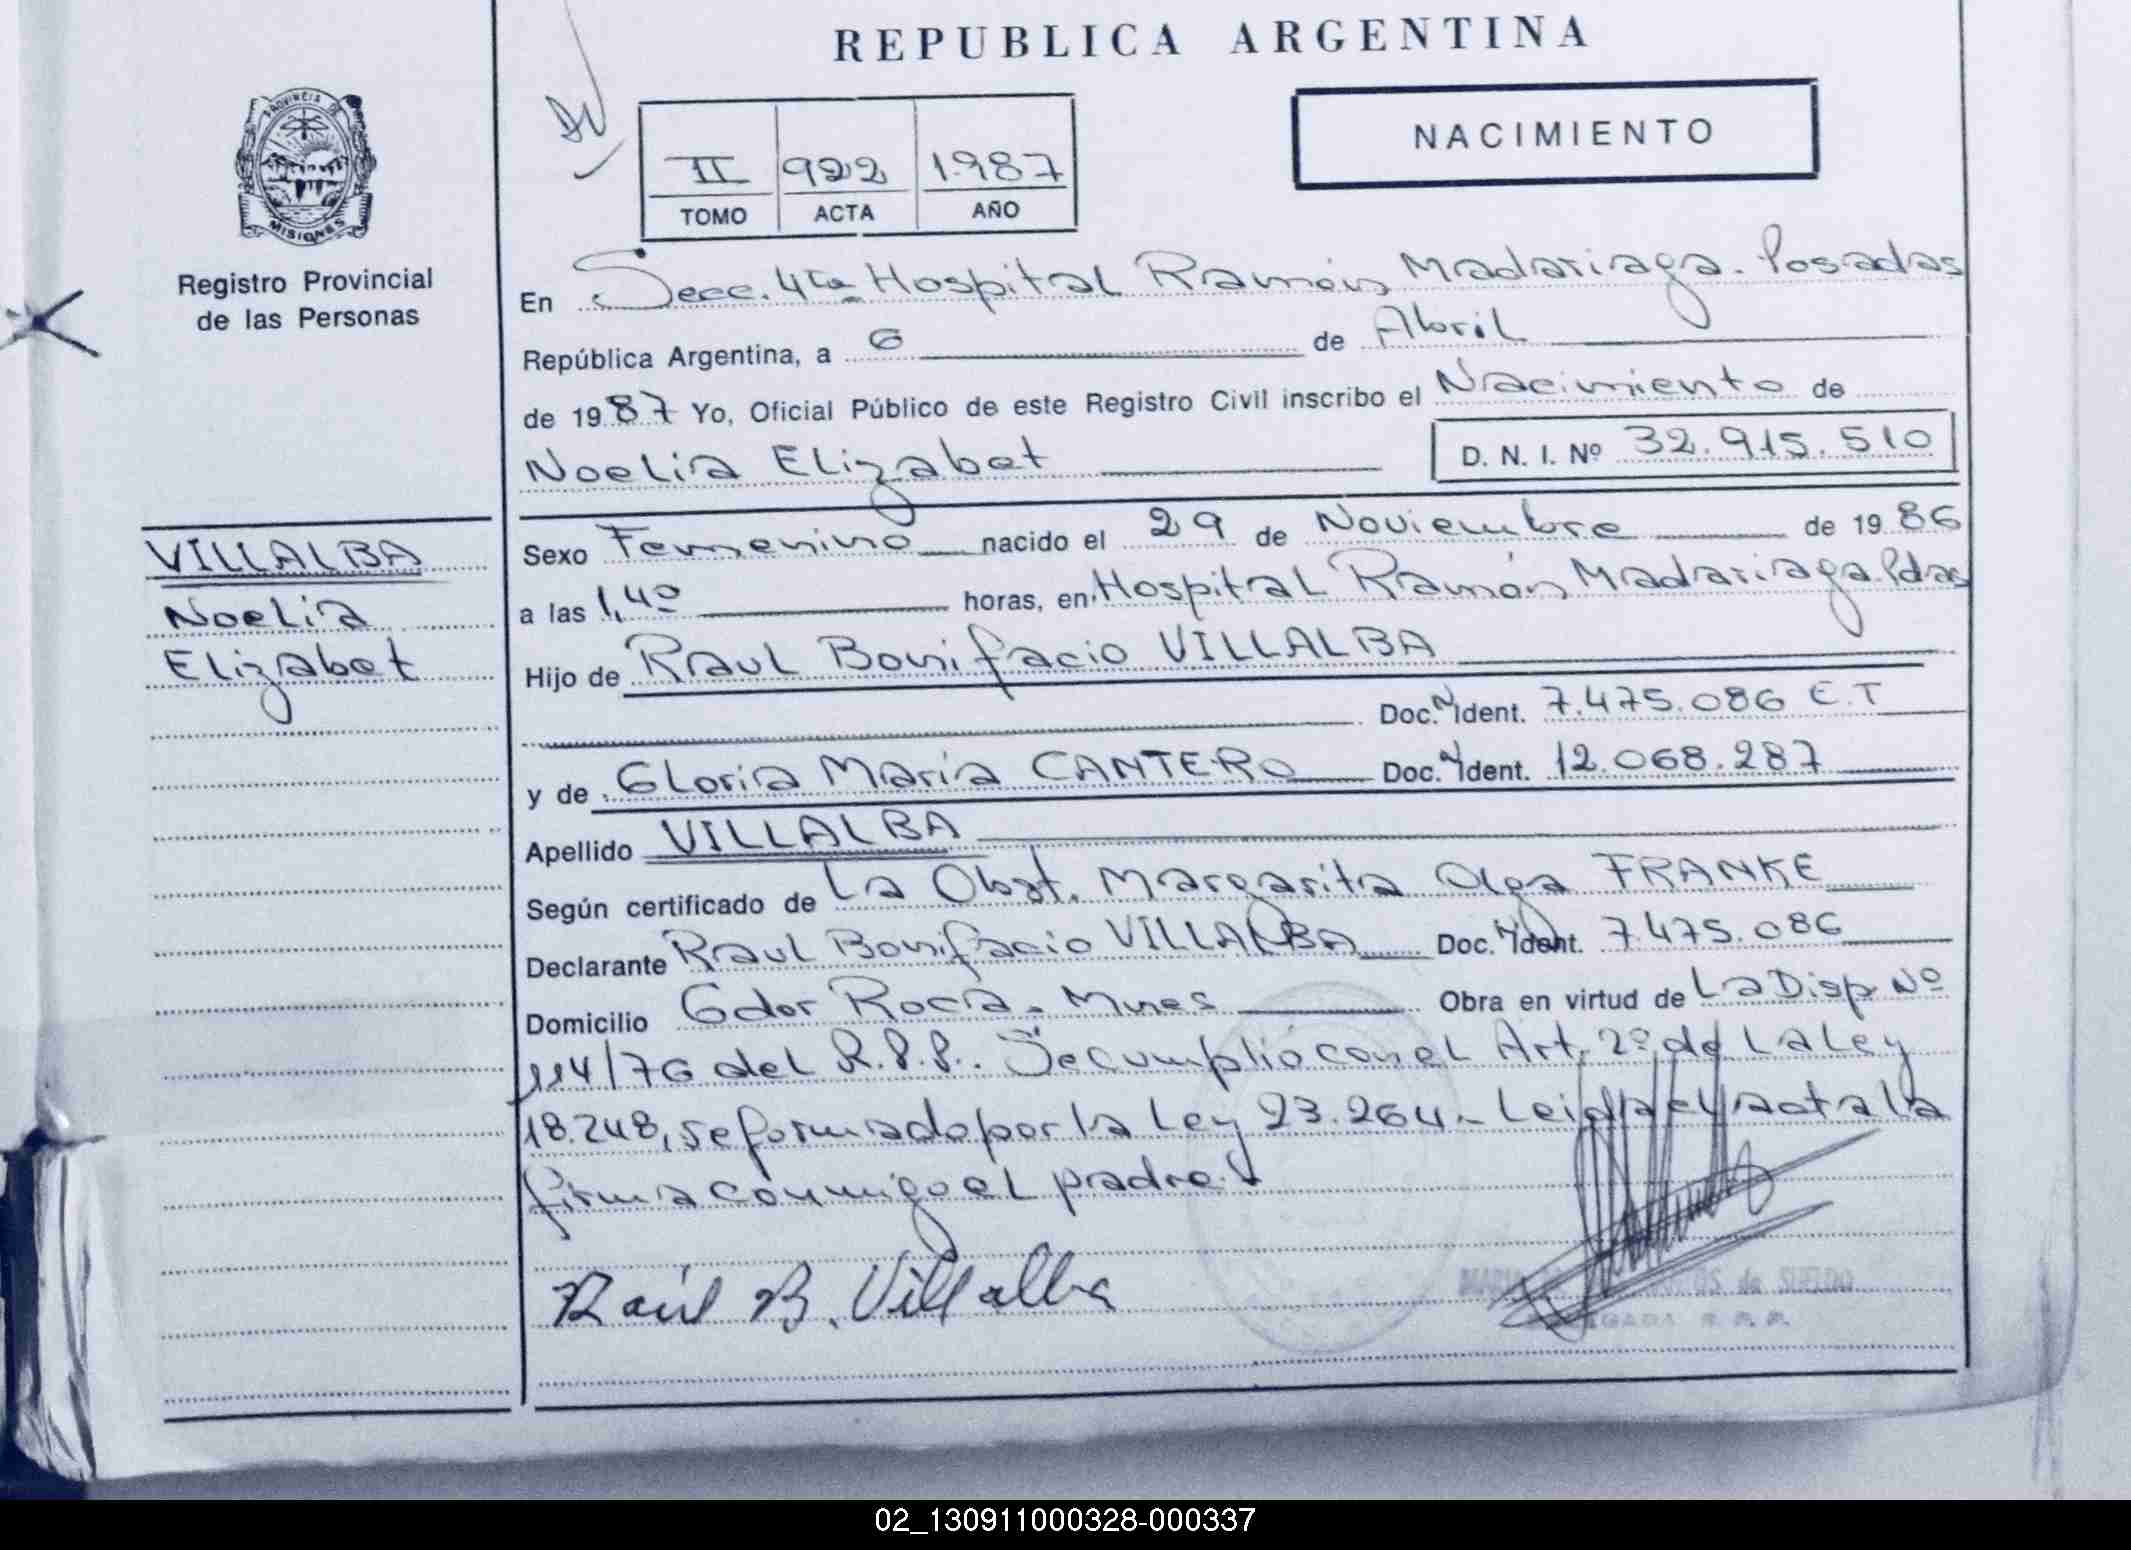 REPUBLICA ARGENTINA
NACIMIENTO
II 922 1987
TOMO ACTA AÑO
PROVINCIA DE
MISIONES
Registro Provincial
de las Personas
En Secc. 4ta Hospital Ramón Madariaga. Posadas
República Argentina, a 6 de Abril
de 1987 Yo, Oficial Público de este Registro Civil inscribo el Nacimiento de
Noelia Elizabet D. N. I. Nº 32.915.510
VILLALBA
Noelia
Elizabet
Sexo Femenino nacido el 29 de Noviembre de 1986
a las 1,40 horas, en Hospital Ramón Madariaga. Pdas
Hijo de Raul Bonifacio VILLALBA
Doc. Ident. 7.475.086 E.T
y de Gloria María CANTERO Doc. Ident. 12.068.287
Apellido VILLALBA
Según certificado de La Obst. Margarita Olga FRANKE
Declarante Raul Bonifacio VILLALBA Doc. Ident. 7.475.086
Domicilio Gdor Roca. Mnes Obra en virtud de La Disp Nº
114/76 del R.P.P.. Se cumplió con el Art. 2º de La Ley
18.248, reformado por la Ley 23.264. Leida el acta la
firma conmigo el padre.
Raúl B. Villalba
de SUELDO
R. P. P.
02_130911000328-000337